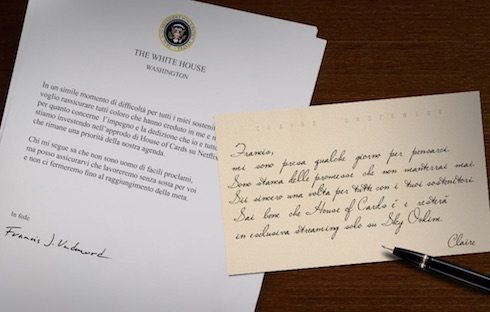 THE WHITE HOUSE
WASHINGTON
In un simile momento di difficoltà per tutti i miei sostenit
voglio rassicurare tutti coloro che hanno creduto in me e n
per quanto concerne l'impegno e la dedizione che io e tut
stiamo investendo nell'approdo di House of Cards su Netflix
che rimane una priorità della nostra agenda.
Chi mi segue sa che non sono uomo di facili proclami,
ma posso assicurarvi che lavoreremo senza sosta per voi
e non ci fermeremo fino al raggiungimento della meta.
In fede
Francis J. Underwood
CLAIRE UNDERWOOD
Francis,
mi sono presa qualche giorno per pensarci.
Sono stanca delle promesse che non manterrai mai.
Sii sincero una volta per tutte con i tuoi sostenitori.
Sai bene che House of Cards è e resterà
in esclusiva streaming solo su Sky Online.
Claire